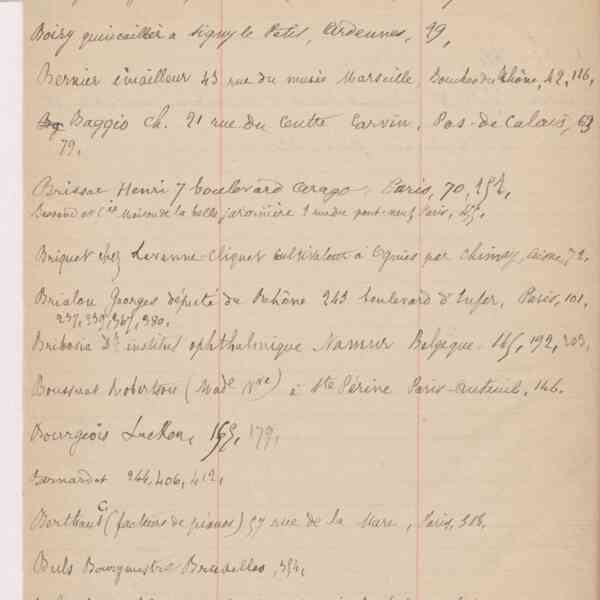 Boisy quincaillier à Signy le Petit, Ardennes, 49,
Bernier émailleur 43 rue du musée Marseille, Bouches du Rhône, 42, 116,
Baggio Ch. 21 rue du Centre Carvin, Pas-de-Calais, 63
79,
Brissac Henri 7 boulevard Arago, Paris, 70, 252,
Besand et Cie Maison de la belle jardinière 2 rue du pont-neuf Paris, 45,
Briquet chez Lavenne-Cliquet cultivateur à Ognies par Chimay, Aisne, 72,
Brialou Georges député du Rhône 243 boulevard d'Enfer, Paris, 101,
237, 339, 367, 380,
Bribosia Dr institut ophthalmique Namur Belgique 165, 192, 203,
Boussuat Robertson (Made Vve) à Ste Périne Paris-Auteuil, 146.
Bourgeois Lucien, 165, 179,
Bernardot 244, 406, 412,
Berthaut (facteurs de pianos) 57 rue de la Mare, Paris, 318.
Buls Bourgmestre Bruxelles, 354,